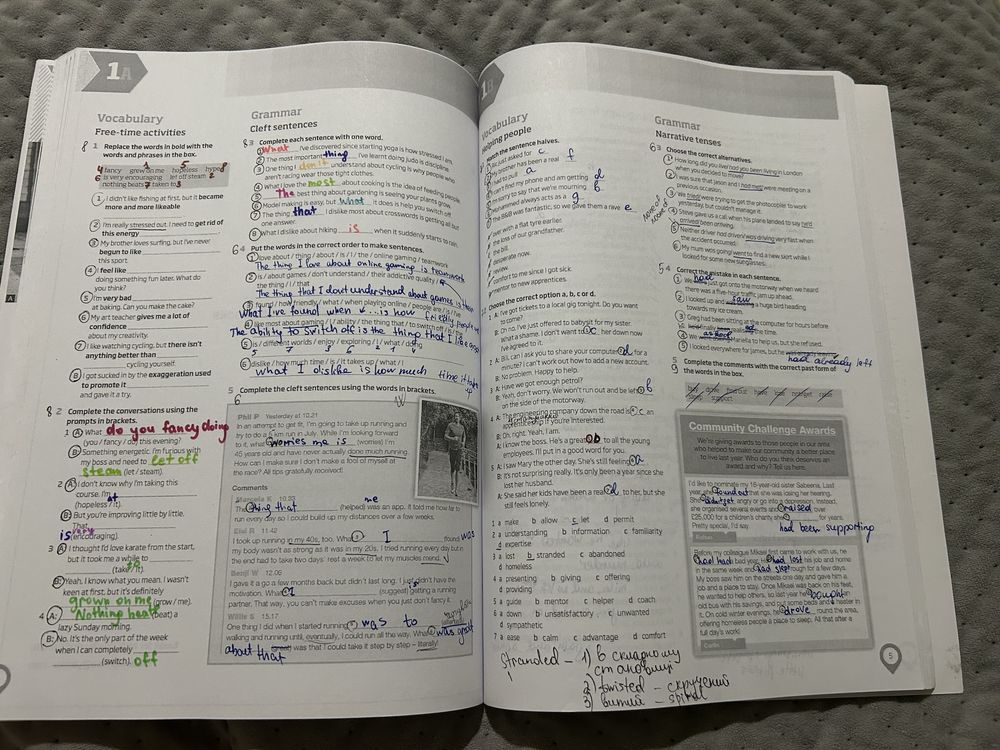 1A
Vocabulary
Free-time activities
8 1 Replace the words in bold with the
words and phrases in the box.
4 fancy grew on me hopeless hype 8
6 is very encouraging let off steam 2
nothing beats 7 taken to 3
1 I didn't like fishing at first, but it became
more and more likeable
2 I'm really stressed out. I need to get rid of
this energy
3 My brother loves surfing, but I've never
begun to like
this sport.
4 I feel like
doing something fun later. What do
you think?
5 I'm very bad
at baking. Can you make the cake?
6 My art teacher gives me a lot of
confidence
about my creativity.
7 I like watching cycling, but there isn't
anything better than
cycling yourself.
8 I got sucked in by the exaggeration used
to promote it
and gave it a try.
8 2 Complete the conversations using the
prompts in brackets.
1 A: What do you fancy doing
(you / fancy / do) this evening?
B: Something energetic. I'm furious with
my boss and need to let off
steam (let / steam).
2 A: I don't know why I'm taking this
course. I'm at
(hopeless / it).
B: But you're improving little by little.
That
is very (encouraging).
3 A: I thought I'd love karate from the start,
but it took me a while to
(take / it). to
B: Yeah, I know what you mean. I wasn't
keen at first, but it's definitely
grown on me (grow / me).
4 A: Nothing beats (beat) a
lazy Sunday morning.
B: No. It's the only part of the week
when I can completely
(switch). off
Grammar
Cleft sentences
8 3 Complete each sentence with one word.
1 What I've discovered since starting yoga is how stressed I am.
2 The most important thing I've learnt doing judo is discipline.
3 One thing I don't understand about cycling is why people who
aren't racing wear those tight clothes.
4 What I love the most about cooking is the idea of feeding people.
5 The best thing about gardening is seeing your plants grow.
6 Model making is easy, but what it does is help you switch off.
7 The thing that I dislike most about crosswords is getting all but
one answer.
8 What I dislike about hiking is when it suddenly starts to rain.
6 4 Put the words in the correct order to make sentences.
1 love about / thing / about / is / I / the / online gaming / teamwork
The thing I love about online gaming is teamwork
2 is / about games / don't understand / their addictive quality /
the thing / I / that
The thing that I don't understand about games is their
3 found / how friendly / what / when playing online / people are / is / I've
What I've found when ... is how friendly people are
4 like most about gaming / I / ability / the thing that / to switch off / is / the
The ability to switch off is the thing that I like most
5 is / different worlds / enjoy / exploring / I / what / doing
6 dislike / how much time / is / It takes up / what / I
What I dislike is how much time it takes up
5 Complete the cleft sentences using the words in brackets.
6
Phil P Yesterday at 10.21
In an attempt to get fit, I'm going to take up running and
try to do a 5 km run in July. While I'm looking forward
to it, what worries me is (worries) I'm
45 years old and have never actually done much running.
How can I make sure I don't make a fool of myself at
the race? All tips gratefully received!
Comments
Marcela K 10.33
The thing that me (helped) was an app. It told me how far to
run every day so I could build up my distances over a few weeks.
Eliel B 11.42
I took up running in my 40s, too. What I (found) was
my body wasn't as strong as it was in my 20s. I tried running every day but in
the end had to take two days' rest a week to let my muscles mend.
Benji W 12.06
I gave it a go a few months back but didn't last long. I just didn't have the
motivation. What I is (suggest) getting a running
partner. That way, you can't make excuses when you just don't fancy it.
Willie S 15.17
One thing I did when I started running was to (alternate)
walking and running until, eventually, I could run all the way. What was great
about that (great) was that I could take it step by step – literally!
1B
Vocabulary
Helping people
Match the sentence halves.
just asked for c
My brother has been a real f
had to pull a
I can't find my phone and am getting d
I'm sorry to say that we're mourning b
Mohammed always acts as a g
The B&B was fantastic, so we gave them a rave e
over with a flat tyre earlier.
the loss of our grandfather.
the bill.
desperate now.
review.
comfort to me since I got sick.
mentor to new apprentices.
Choose the correct option a, b, c or d.
1 A: I've got tickets to a local gig tonight. Do you want
to come?
B: Oh no. I've just offered to babysit for my sister.
What a shame. I don't want to c her down now
I've agreed to it.
2 A: Bill, can I ask you to share your computer d for a
minute? I can't work out how to add a new account.
B: No problem. Happy to help.
3 A: Have we got enough petrol?
B: Yeah, don't worry. We won't run out and be left b
on the side of the motorway.
4 A: The engineering company down the road is c an
apprenticeship if you're interested.
B: Oh, right. Yeah, I am.
A: I know the boss. He's a great b to all the young
employees. I'll put in a good word for you.
5 A: I saw Mary the other day. She's still feeling a
B: It's not surprising really. It's only been a year since she
lost her husband.
A: She said her kids have been a real d to her, but she
still feels lonely.
1 a make b allow c let d permit
2 a understanding b information c familiarity
d expertise
3 a lost b stranded c abandoned
d homeless
4 a presenting b giving c offering
d providing
5 a guide b mentor c helper d coach
6 a down b unsatisfactory c unwanted
d sympathetic
7 a ease b calm c advantage d comfort
stranded – 1) в складному
становищі
2) twisted – скручений
3) витий – spiral
Grammar
Narrative tenses
6 3 Choose the correct alternatives.
1 How long did you live/had you been living in London
when you decided to move?
2 I was sure that Jason and I had met/were meeting on a
previous occasion.
3 We tried/were trying to get the photocopier to work
yesterday, but couldn't manage it.
4 Steve gave us a call when his plane landed to say he'd
arrived/been arriving.
5 Neither driver had driven/was driving very fast when
the accident occurred.
6 My mum was going/went to find a new skirt while I
looked for some new sunglasses.
5 4 Correct the mistake in each sentence.
1 We had just got onto the motorway when we heard
there was a five-hour traffic jam up ahead.
2 I looked up and saw a huge bird heading
towards my ice cream.
3 Greg had been sitting at the computer for hours before
he'd finally
4 We asked Mariella to help us, but she refused.
5 I looked everywhere for James, but he
had already left
5 Complete the comments with the correct past form of
9 the words in the box.
buy drive find out have lose not get raise
sleep support
Community Challenge Awards
We're giving awards to those people in our area
who helped to make our community a better place
to live last year. Who do you think deserves an
award and why? Tell us here.
I'd like to nominate my 16-year-old sister Sabeena. Last
year, she found out that she was losing her hearing.
She didn't get angry or go into a depression. Instead,
she organised several events and raised over
£25,000 for a children's charity she for years.
Pretty special, I'd say. had been supporting
Before my colleague Mikael first came to work with us, he
had had a bad year. He had lost his job and home
in the same week and had slept rough for a few days.
My boss saw him on the streets one day and gave him a
job and a place to stay. Once Mikael was back on his feet,
he wanted to help others, so last year he bought an
old bus with his savings, and put some beds and a heater in
it. On cold winter evenings, he drove round the area,
offering homeless people a place to sleep. All that after a
full day's work!
Carlin
5